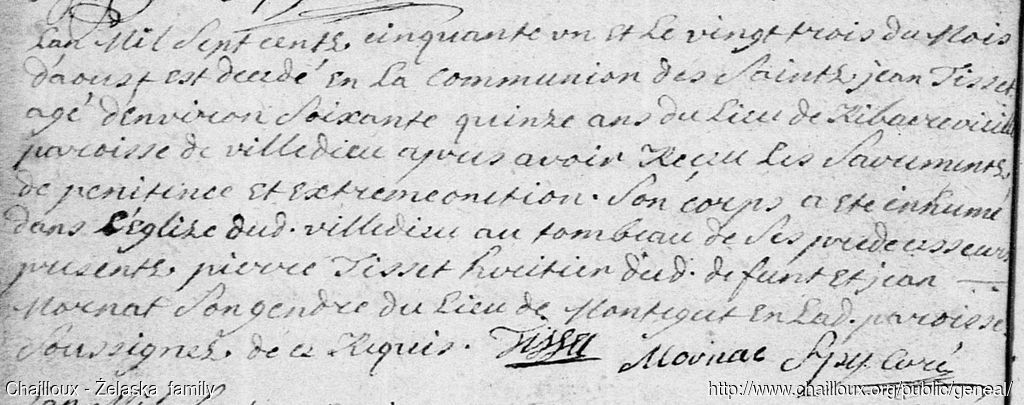 Lan Mil Sept cents, cinquante un Et Le vingt trois du Mois
d'aoust est decedé En La Communion des Saints, jean Tisset
agé denviron Soixante quinze ans du Lieu de
paroisse de villedieu apres avoir Reçeu Les Sacrements,
de penitence Et Extremeonction. Son corps a Eté inhumé
dans l'église dud. villedieu au tombeau de Ses predecesseurs
presents, pierre Tisset heritier dud. defunt Et jean
Mornat Son gendre du Lieu de Montegut En Lad. paroisse
Soussignez, de ce Requis. Tisset Mornac Curé
Chailloux - Żelaska family http://www.chailloux.org/public/geneal/
Lan Mil